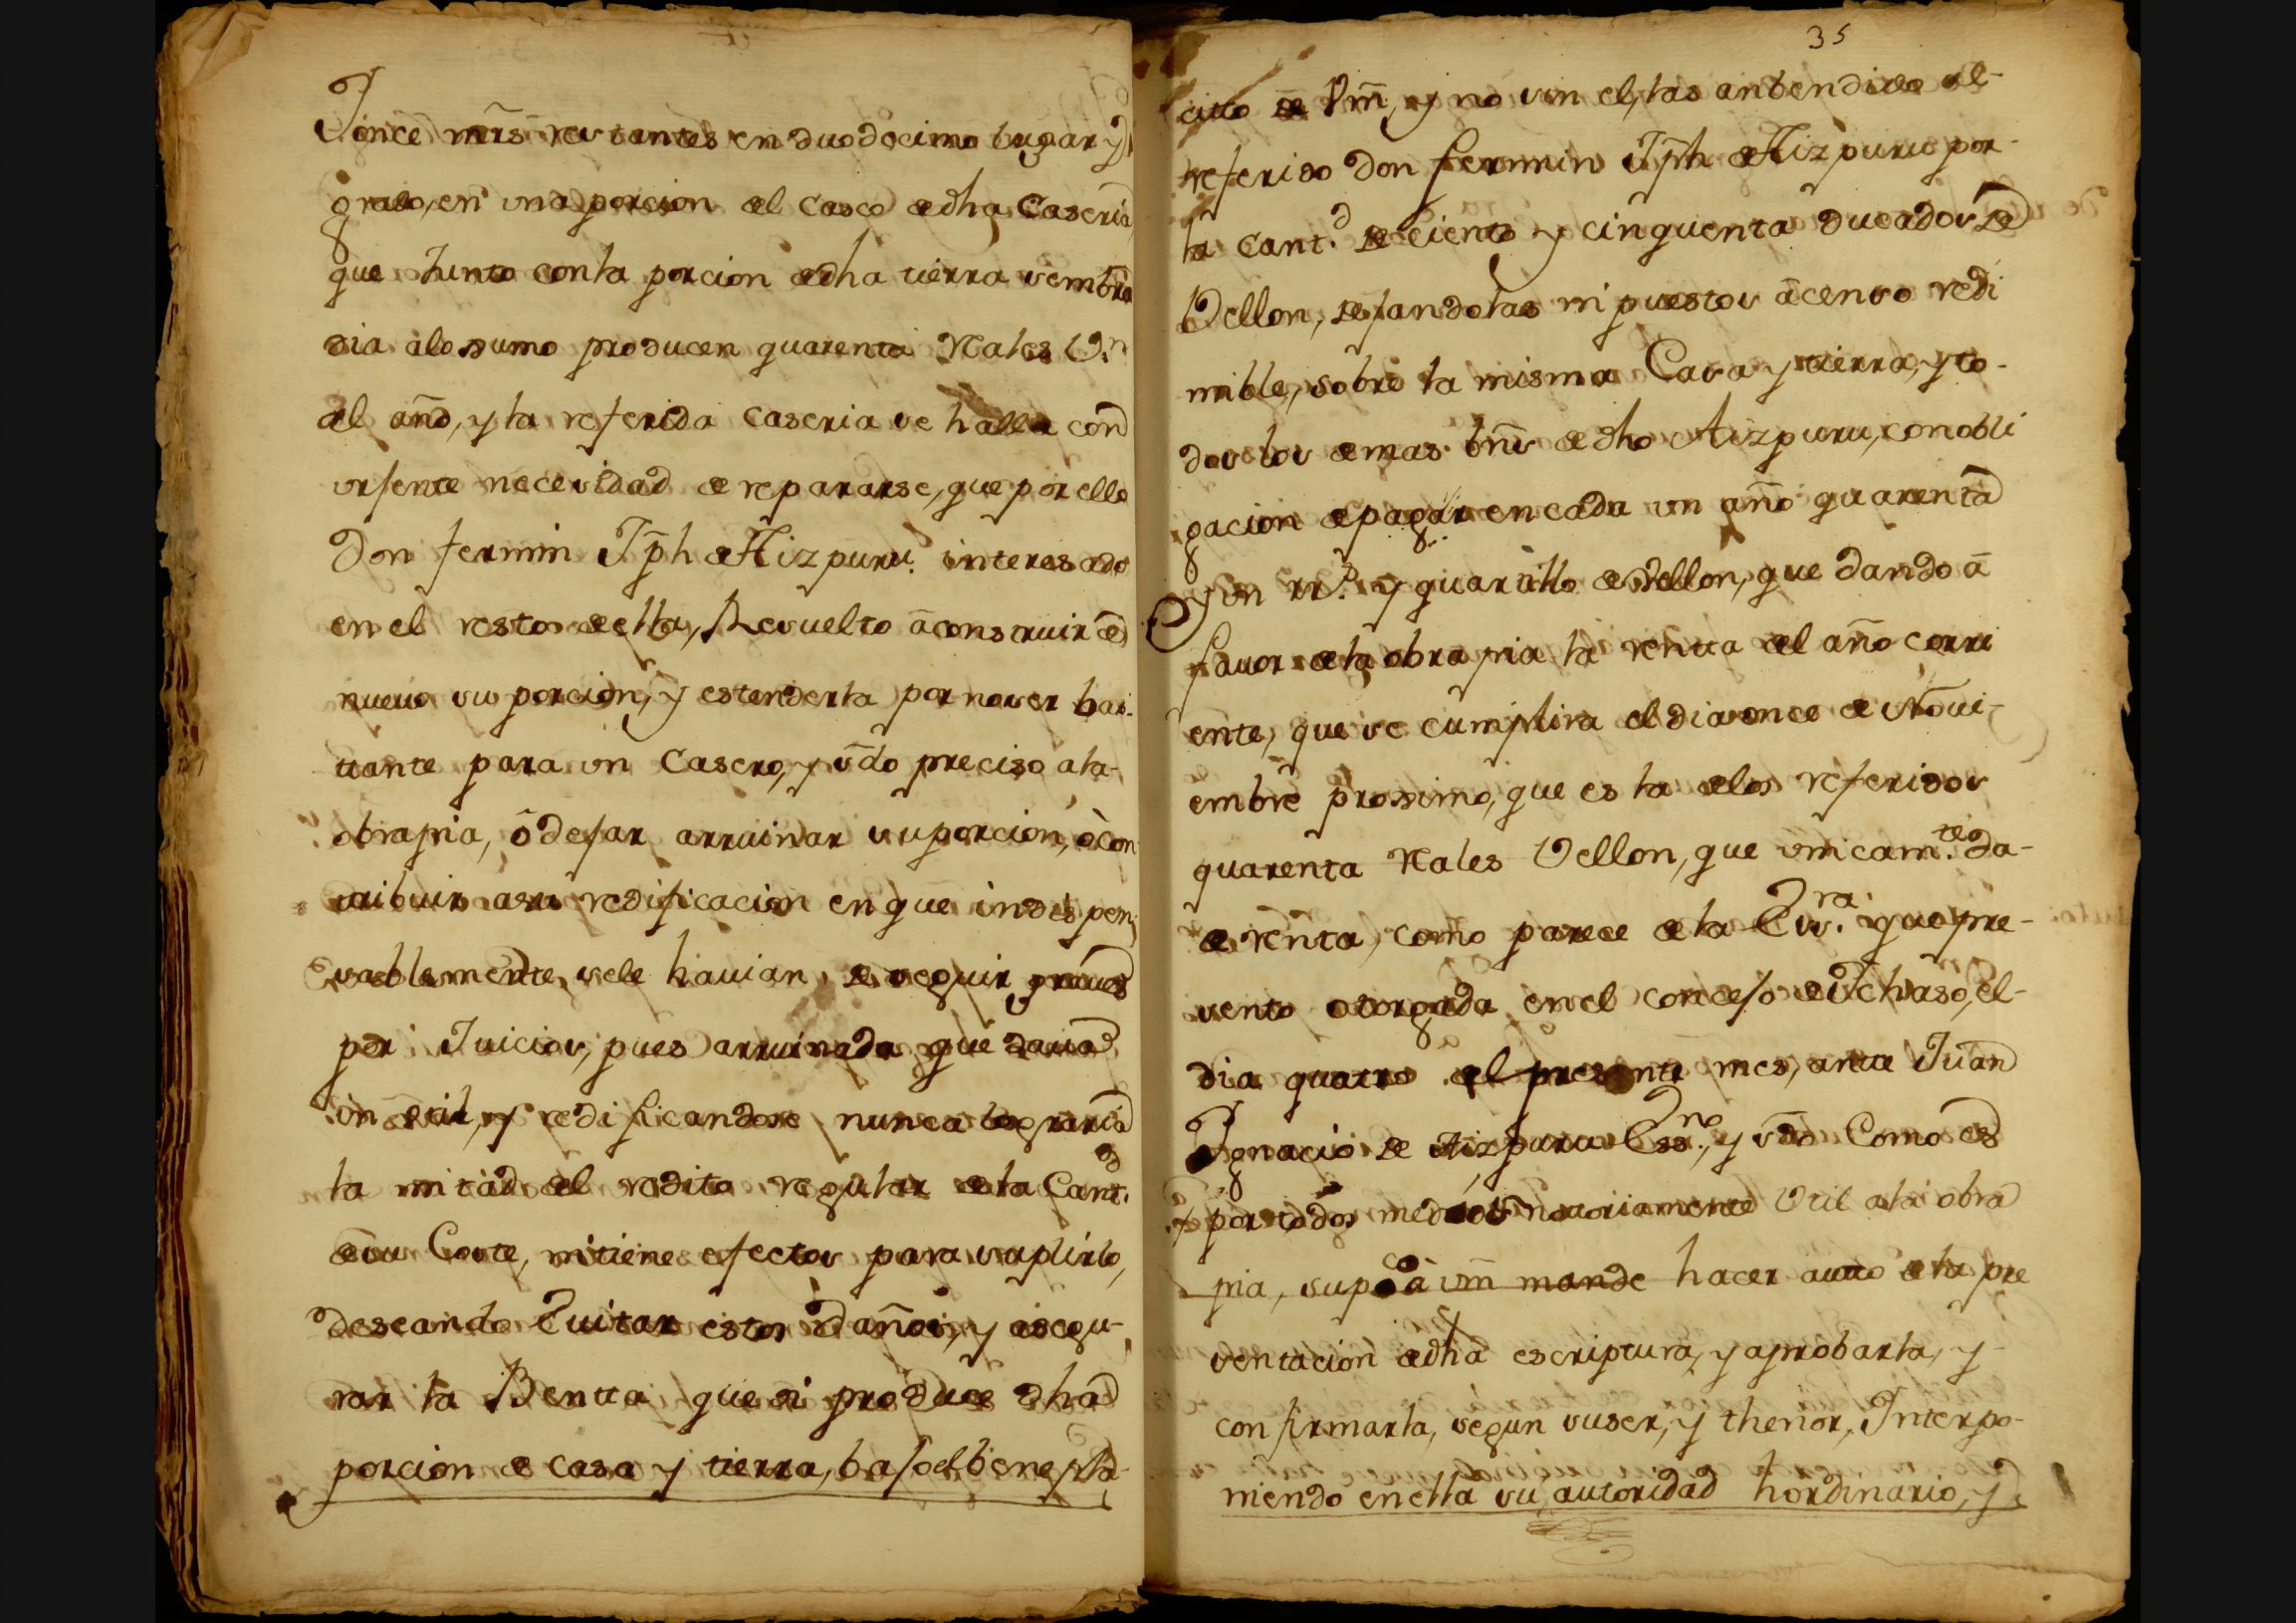 Yonce mrs restantes en duodocimo lugar y
grado, en una porcion del Casco dedha Caseria
que Junto con la porcion dedha tierra sembra
dia alo sumo producen quarenta Rales Vn
al año, y la referida caseria se halla con
urfente necesidad de repararse, que por ello
Don fermin Jph de Aizpuru interesado
en el resto de ella, Resuelto a construir de
nueuo su porcion, y estenderla por no ser bai-
tante para un Casero, y sdo preciso ala
obra pia, ô defar arruinar su porcion, ò con
tribuir asu redificacion en que indespen
sablemente se le hauian de seguir graues
per Juicios, pues arruinada quedaria
inutil, y redificandose nunca lograria
la mitad del redito regular de la Cant.d
de su Coste, ni tiene efectos para suplirlo,
deseando Euitar estos daños, y asegu-
rar la Renta que si produce dha
porcion de casa y tierra, bafo el bene pla-
35
cito de Vm, y no sin el, las a bendido al
referido Don fermin Jph de Aizpuru por
la Cant.d de Ciento y cinquenta ducados de
Vellon, defandolas inpuestos a censo redi
mible, sobre la misma Casa y tierra, y to-
dos los demas bns de dho Aizpuru, con obli
gacion de pagar en cada un año quarenta
y un rr.s y quartillo de Vellon, que dando a
fauor de la obra pia la renta del año corri
ente, que se cumplira el dia once de Noui-
embre prosimo, que es la de los referidos
quarenta Rales Vellon, que unicam.te da-
de renta, como parece de la Esr.ra que pre-
sento otorgada en el concefo de Ychaso, el
dia quatro del presente mes, ante Juan
Ignacio de Aizpuru Ess.no, y sdo Como es
por todos medios notoriamente Util ala obra
pia, sup.co a Vm mande hacer auto de la pre
sentacion dedha escriptura, y aprobarla, y
confirmarla, segun suser, y thenor, Interpo-
niendo en ella su autoridad hordinario, y